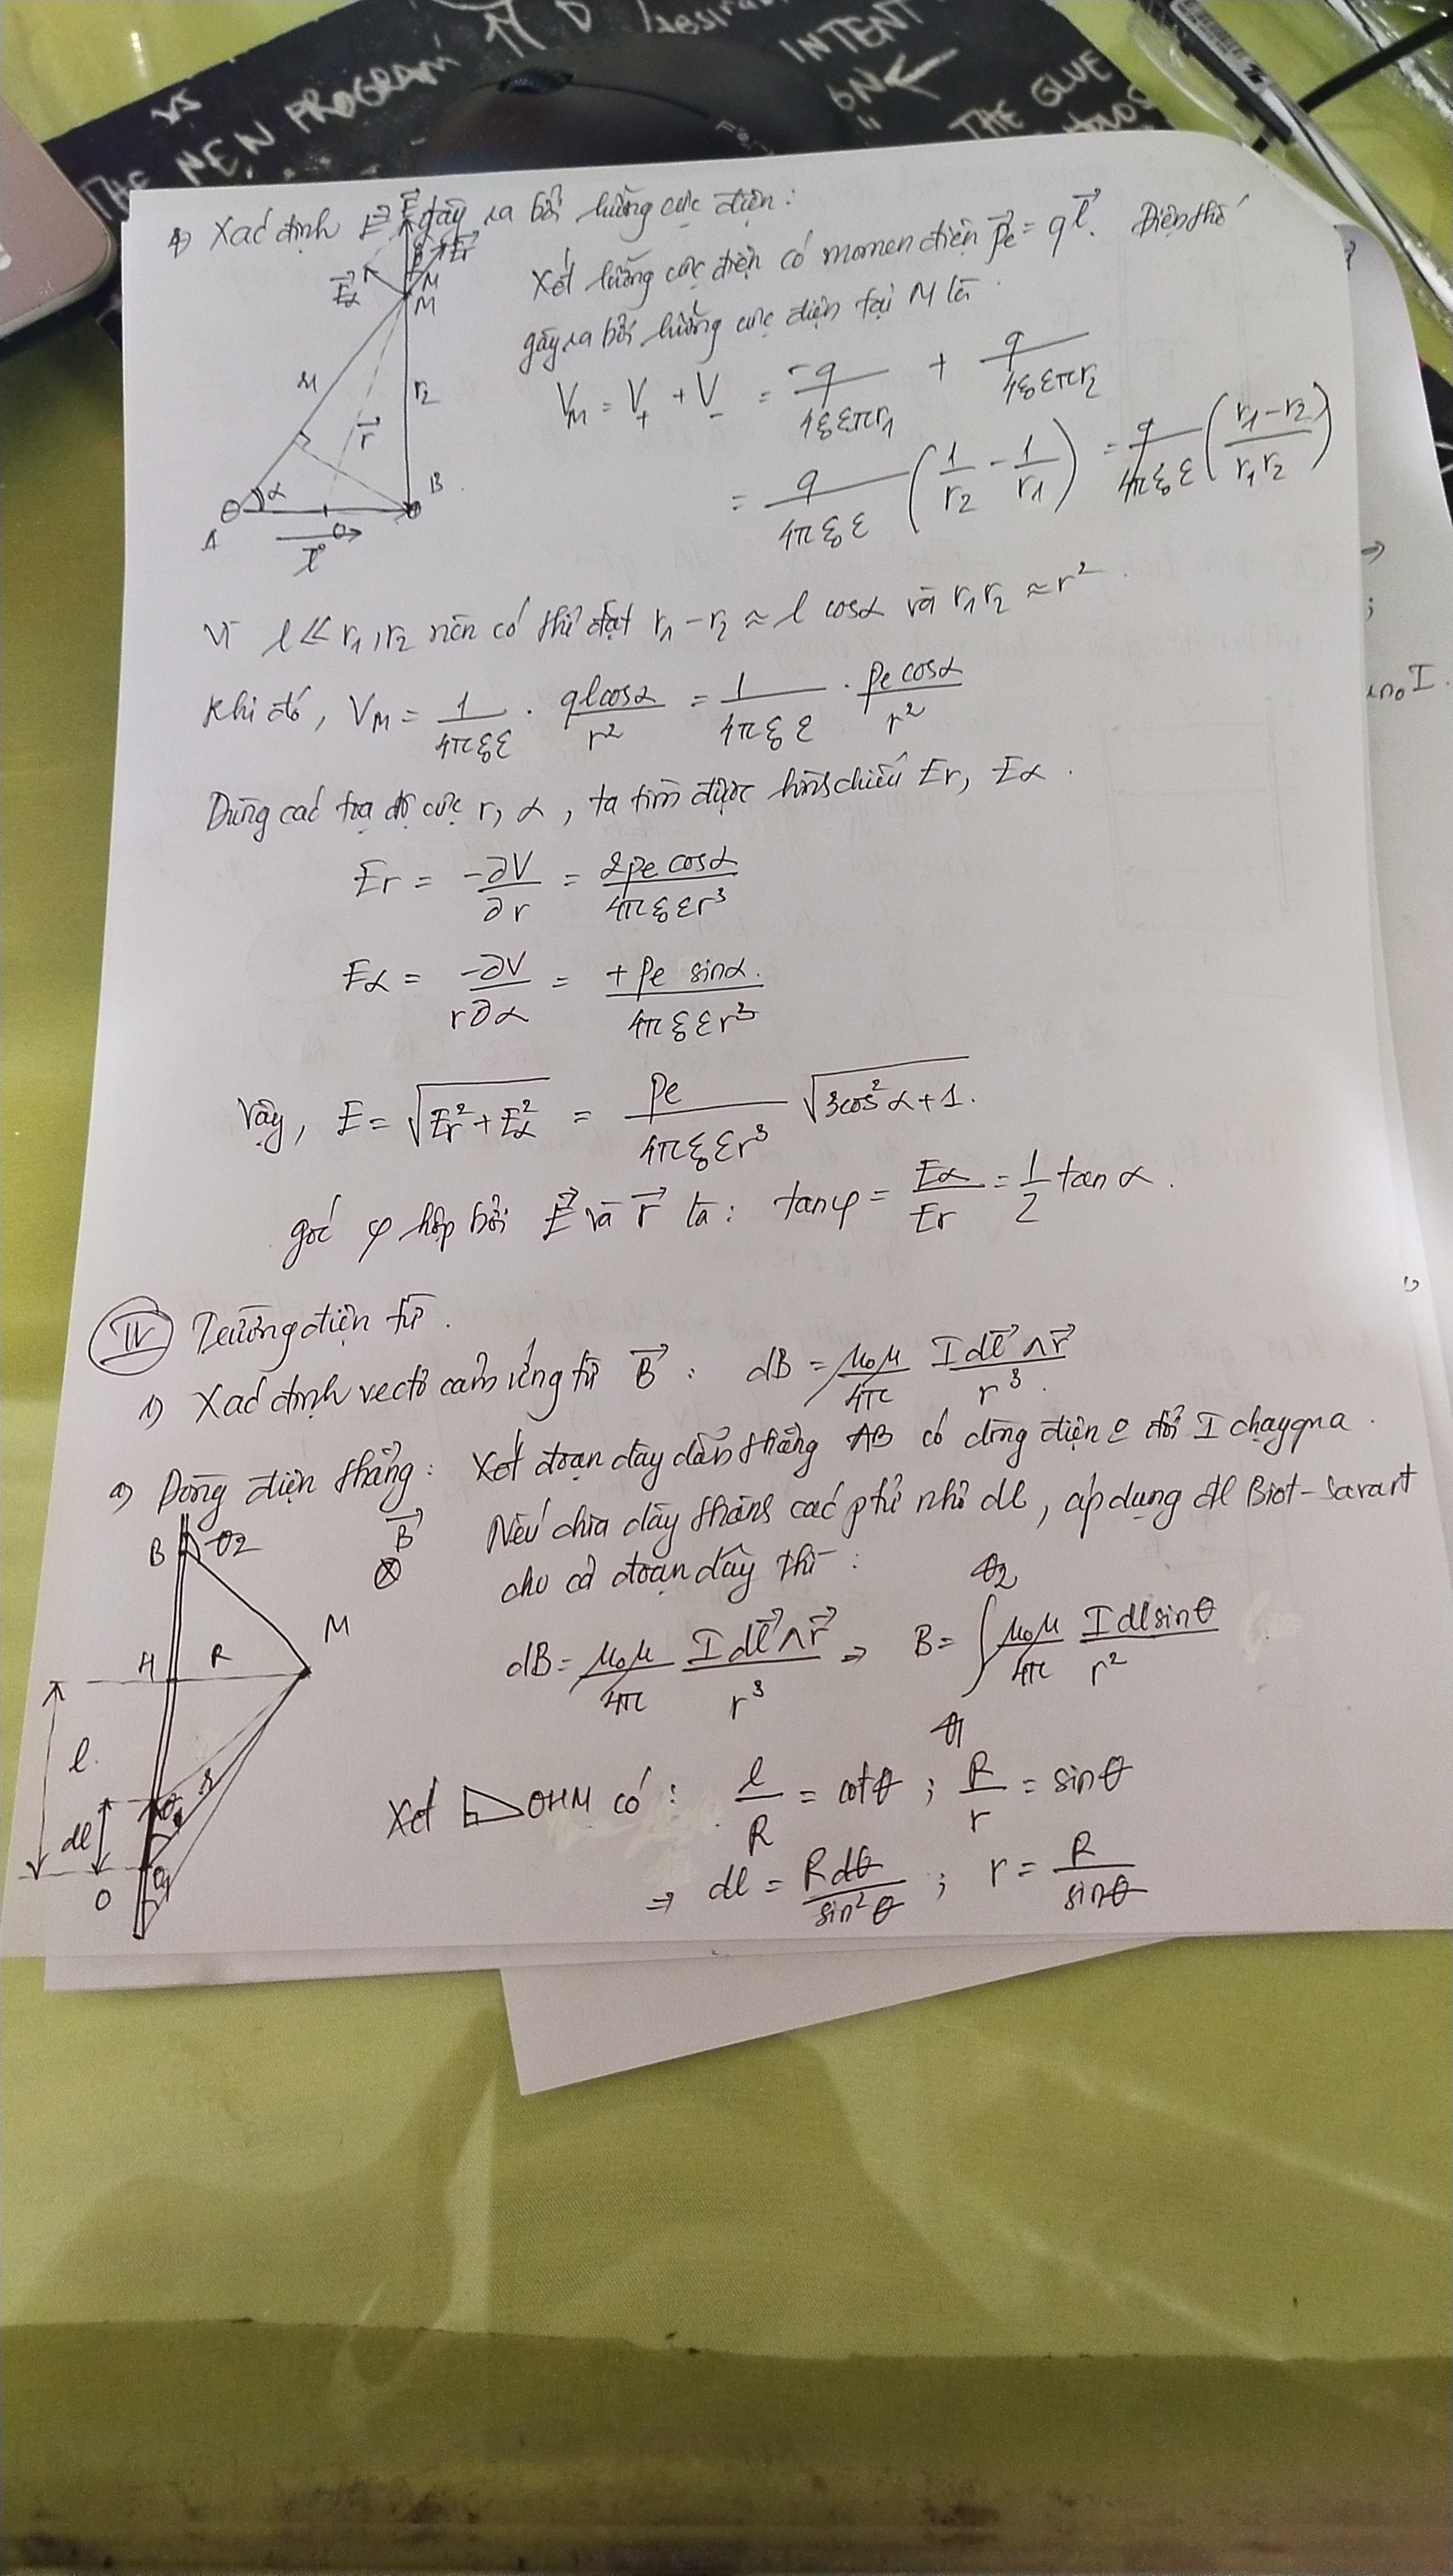 THE NEN PROGRAM
INTENT
ON
THE GLUE
4) Xác định E⃗ gây ra bởi lưỡng cực điện:
Xét lưỡng cực điện có momen điện p⃗e = ql⃗. Điện thế
gây ra bởi lưỡng cực điện tại M là
V_M = V_+ + V_- = -q/(4ε₀επr₁) + q/(4ε₀επr₂)
= q/(4πε₀ε) (1/r₂ - 1/r₁) = q/(4πε₀ε) ((r₁ - r₂)/(r₁r₂))
E⃗α E⃗r M M r₂ r⃗ α A B O l⃗
Vì l ≪ r₁, r₂ nên có thể đặt r₁ - r₂ ≈ l cosα và r₁r₂ ≈ r²
Khi đó, V_M = 1/(4πε₀ε) . qlcosα/r² = 1/(4πε₀ε) . pe cosα/r²
Dùng các tọa độ cực r, α, ta tìm được hình chiếu Er, Eα.
Er = -∂V/∂r = 2pe cosα/(4πε₀εr³)
Eα = -∂V/(r∂α) = +pe sinα/(4πε₀εr³)
Vậy, E = √(Er² + Eα²) = pe/(4πε₀εr³) √(3cos²α + 1).
góc φ hợp bởi E⃗ và r⃗ là: tanφ = Eα/Er = 1/2 tanα.
IV Trường điện từ.
1) Xác định vectơ cảm ứng từ B⃗: dB = μ₀μ/4π Idl⃗ ∧ r⃗/r³.
a) Dòng điện thẳng: Xét đoạn dây dẫn thẳng AB có dòng điện c đổi I chạy qua.
Nếu chia dây thành các phử nhỏ dl, áp dụng đl Biot-Savart
cho cả đoạn dây thì:
dB = μ₀μ/4π Idl⃗ ∧ r⃗/r³ ⇒ B = ∫θ₁^θ₂ μ₀μ/4π Idlsinθ/r²
B θ2 B⃗ ⊗ M H R l r dl O θ θ1
Xét ◺OHM có: l/R = cotθ; R/r = sinθ
⇒ dl = Rdθ/sin²θ; r = R/sinθ